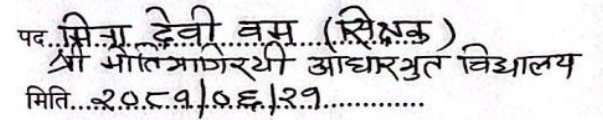 पद...मिना देवी वम (सिक्षक)
श्री मोतिभागिरथी आधारभुत विद्यालय
मिति...२०८१/०६/२१...............